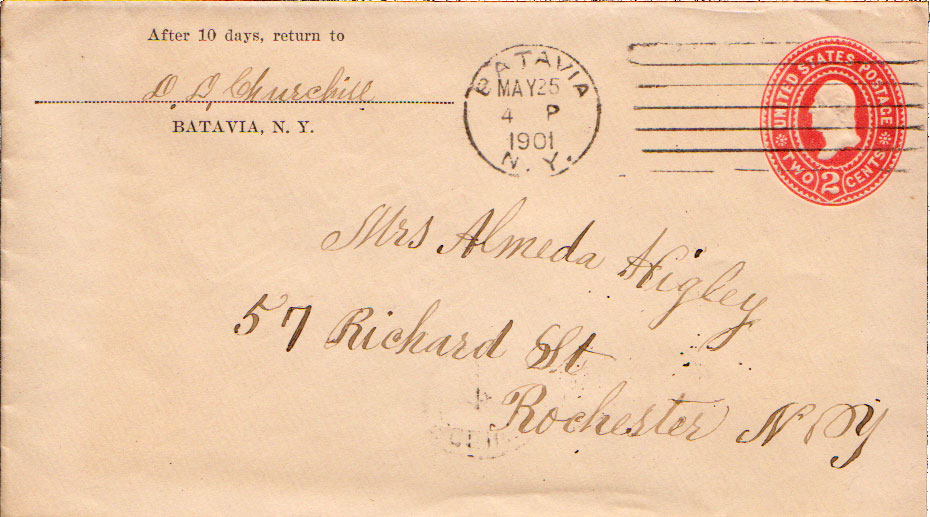 After 10 days, return to
D. D. Churchill
BATAVIA, N. Y.
BATAVIA
MAY 25
4 P
1901
N. Y.
UNITED STATES POSTAGE
TWO 2 CENTS
Mrs Almeda Higley
57 Richard St
Rochester N Y